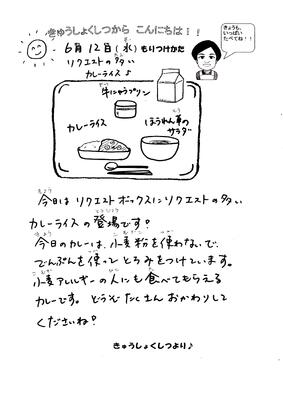 きゅうしょくしつから こんにちは！！
きょうも、
いっぱい
たべてね！！
6月12日(水)もりつけかた
リクエストの多い
カレーライス♪
牛にゅうプリン
カレーライス
ほうれん草の
サラダ
今日はリクエストボックスにリクエストの多い
カレーライスの登場です！
今日のカレーは、小麦粉を使わないで、
でんぷんを使ってとろみをつけています。
小麦アレルギーの人にも食べてもらえる
カレーです。どうぞたくさんおかわりして
くださいね？
きゅうしょくしつより♪